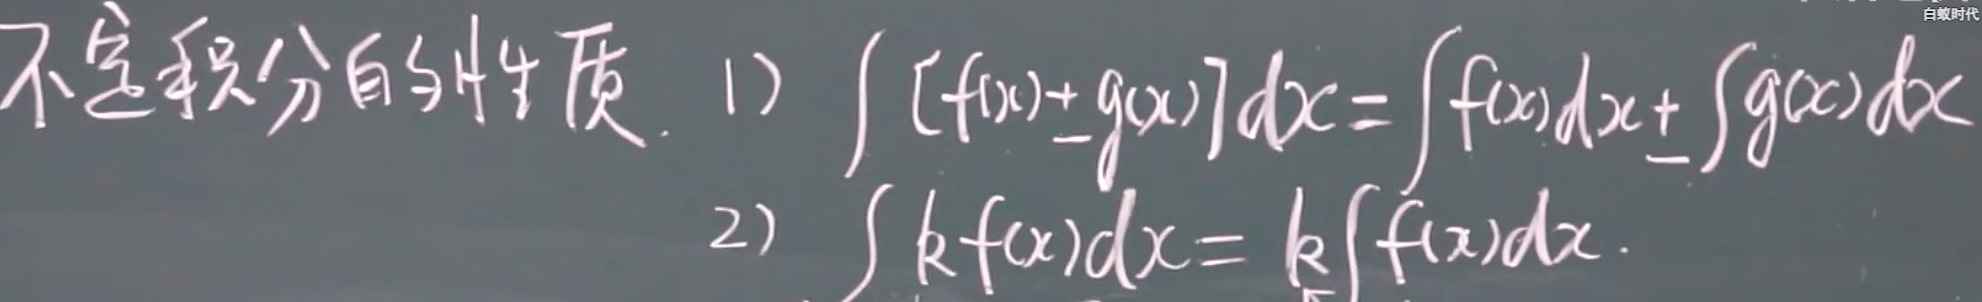 白蚁时代
不定积分的性质. 1) ∫[f(x)±g(x)]dx=∫f(x)dx±∫g(x)dx
2) ∫kf(x)dx=k∫f(x)dx.